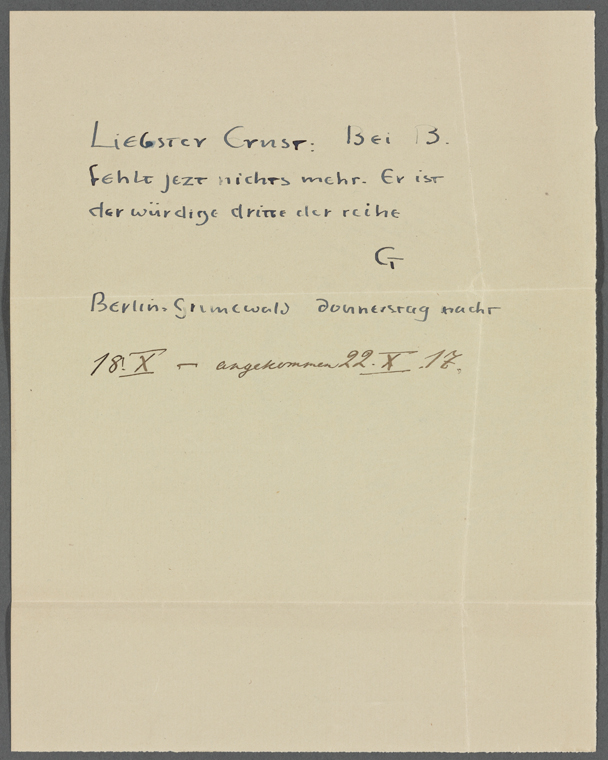 Liebster Ernst: Bei B.
fehlt jezt nichts mehr. Er ist
der würdige dritte der reihe
G
Berlin-Grunewald donnerstag nacht
18. X – angekommen 22. X. 17.